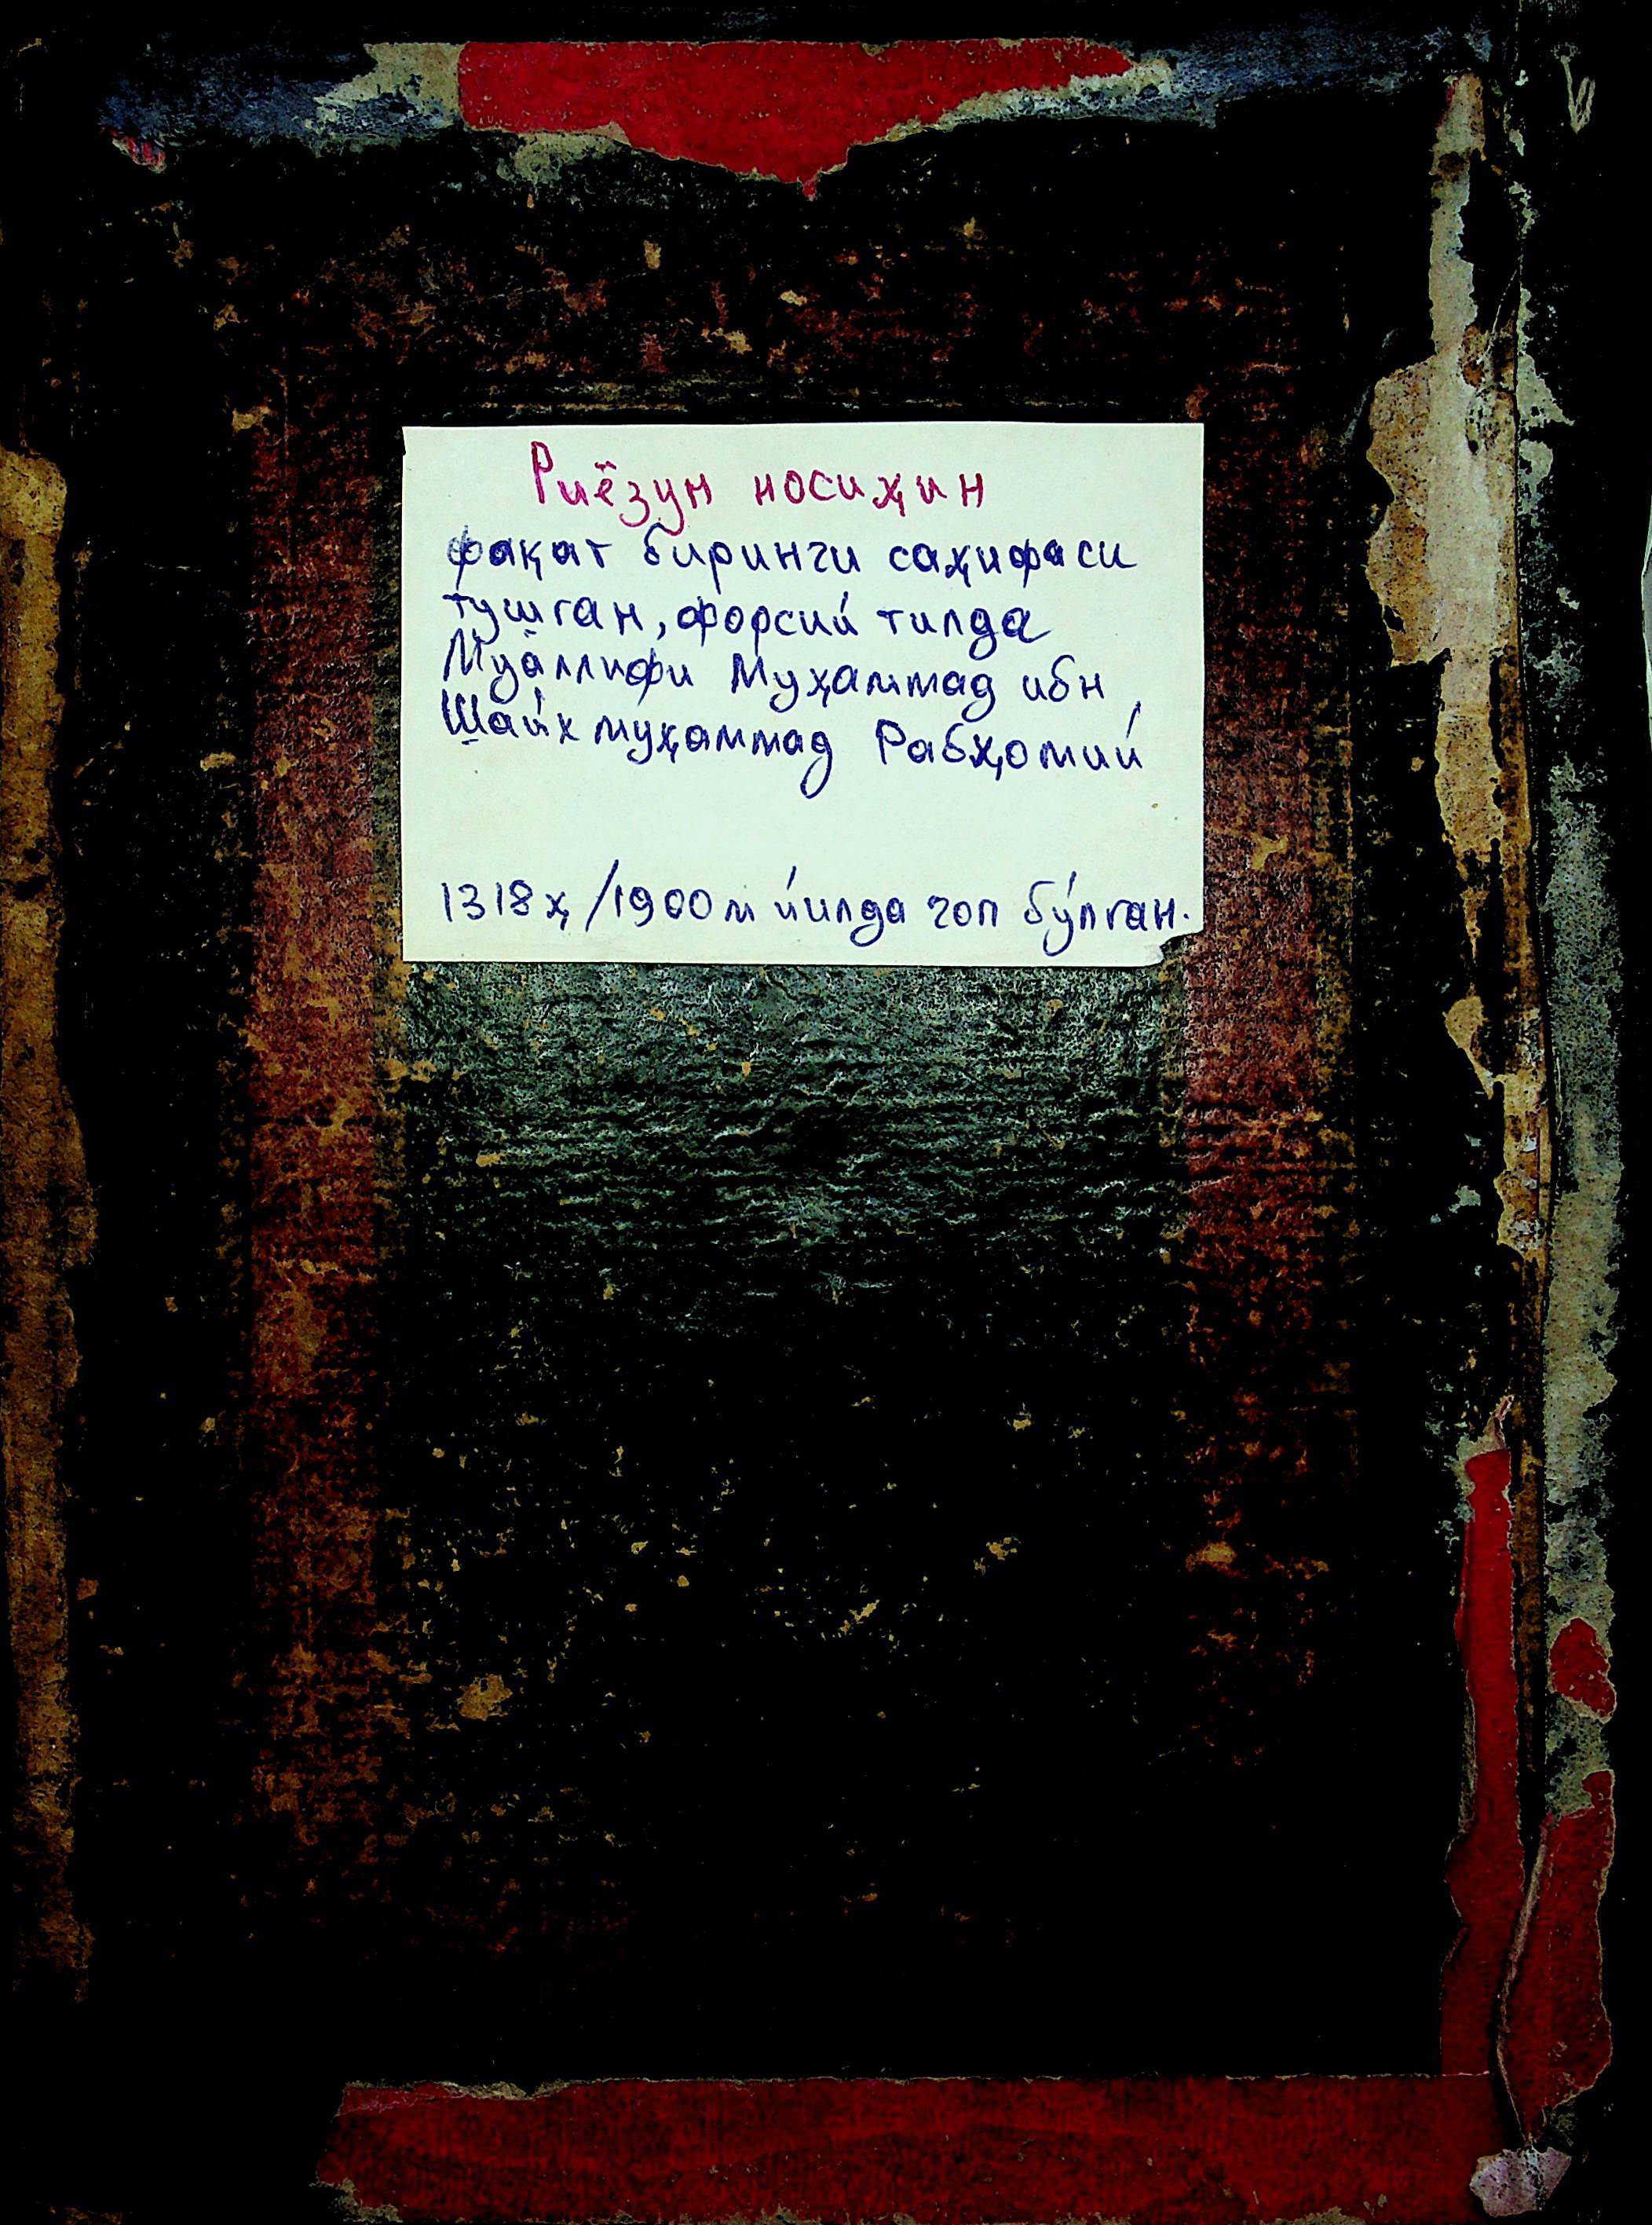 Риёзун носиҳин
фақат биринчи саҳифаси
тушган, форсий тилда
Муаллифи Муҳаммад ибн
Шайх муҳаммад Рабҳомий
1318ҳ/1900м йилда чоп бўлган.